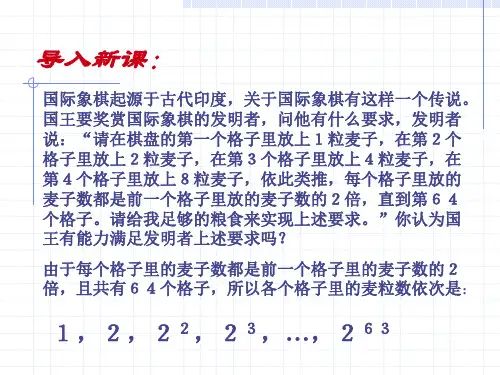 导入新课：
国际象棋起源于古代印度，关于国际象棋有这样一个传说。
国王要奖赏国际象棋的发明者，问他有什么要求，发明者
说：“请在棋盘的第一个格子里放上１粒麦子，在第２个
格子里放上２粒麦子，在第３个格子里放上４粒麦子，在
第４个格子里放上８粒麦子，依此类推，每个格子里放的
麦子数都是前一个格子里放的麦子数的２倍，直到第６４
个格子。请给我足够的粮食来实现上述要求。”你认为国
王有能力满足发明者上述要求吗？
由于每个格子里的麦子数都是前一个格子里的麦子数的２
倍，且共有６４个格子，所以各个格子里的麦粒数依次是：
１，２，２²，２³，…，２⁶³